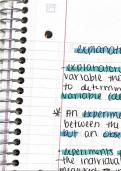 explanat
explanator
variable the
to determin
variable (de
* An experime
between the
but an obse
experiments
the individual